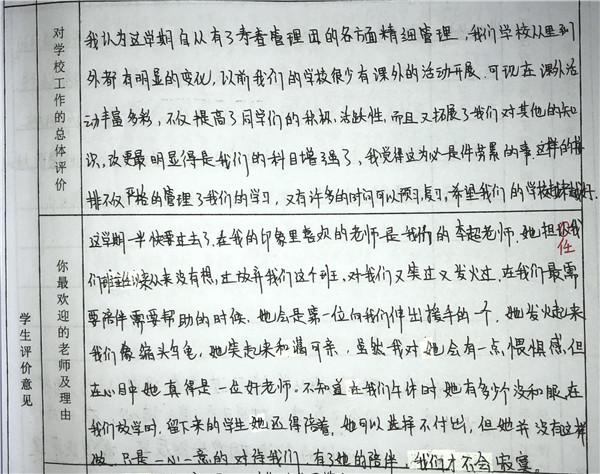 对学校工作的总体评价
我认为这学期自从有了青香管理团的各方面精细管理，我们学校从里到
外都有明显的变化，以前我们的学校很少有课外的活动开展，可现在课外活
动丰富多彩，不仅提高了同学们的积极、活跃性，而且又拓展了我们对其他的知
识，改更最明显得是我们的科目增强了，我觉得这为必是件劳累的事，这样的
排不仅严格的管理了我们的学习，又有许多的时间可以预习复习，希望我们的学校越来越好.
学生评价意见
你最欢迎的老师及理由
这学期一半快要过去了，在我的印象里喜欢的老师是我们的李超老师，她担我
任
们从来没有想过放弃我们这个班，对我们又笑过又发火过，在我们最需
要陪伴需要帮助的时候，她会是第一位向我们伸出援手的一个，她发火起来
我们像缩头乌龟，她笑起来和蔼可亲，虽然我对她会有一点惧感，但
在心目中她真得是一位好老师，不知道在我们午休时她有多少个没和眼，在
我们放学时，留下来的学生她还得陪着，她可以选择不付出，但她并没有这样
做，只是一心一意的对待我们，有了她的陪伴，我们才不会寂寞